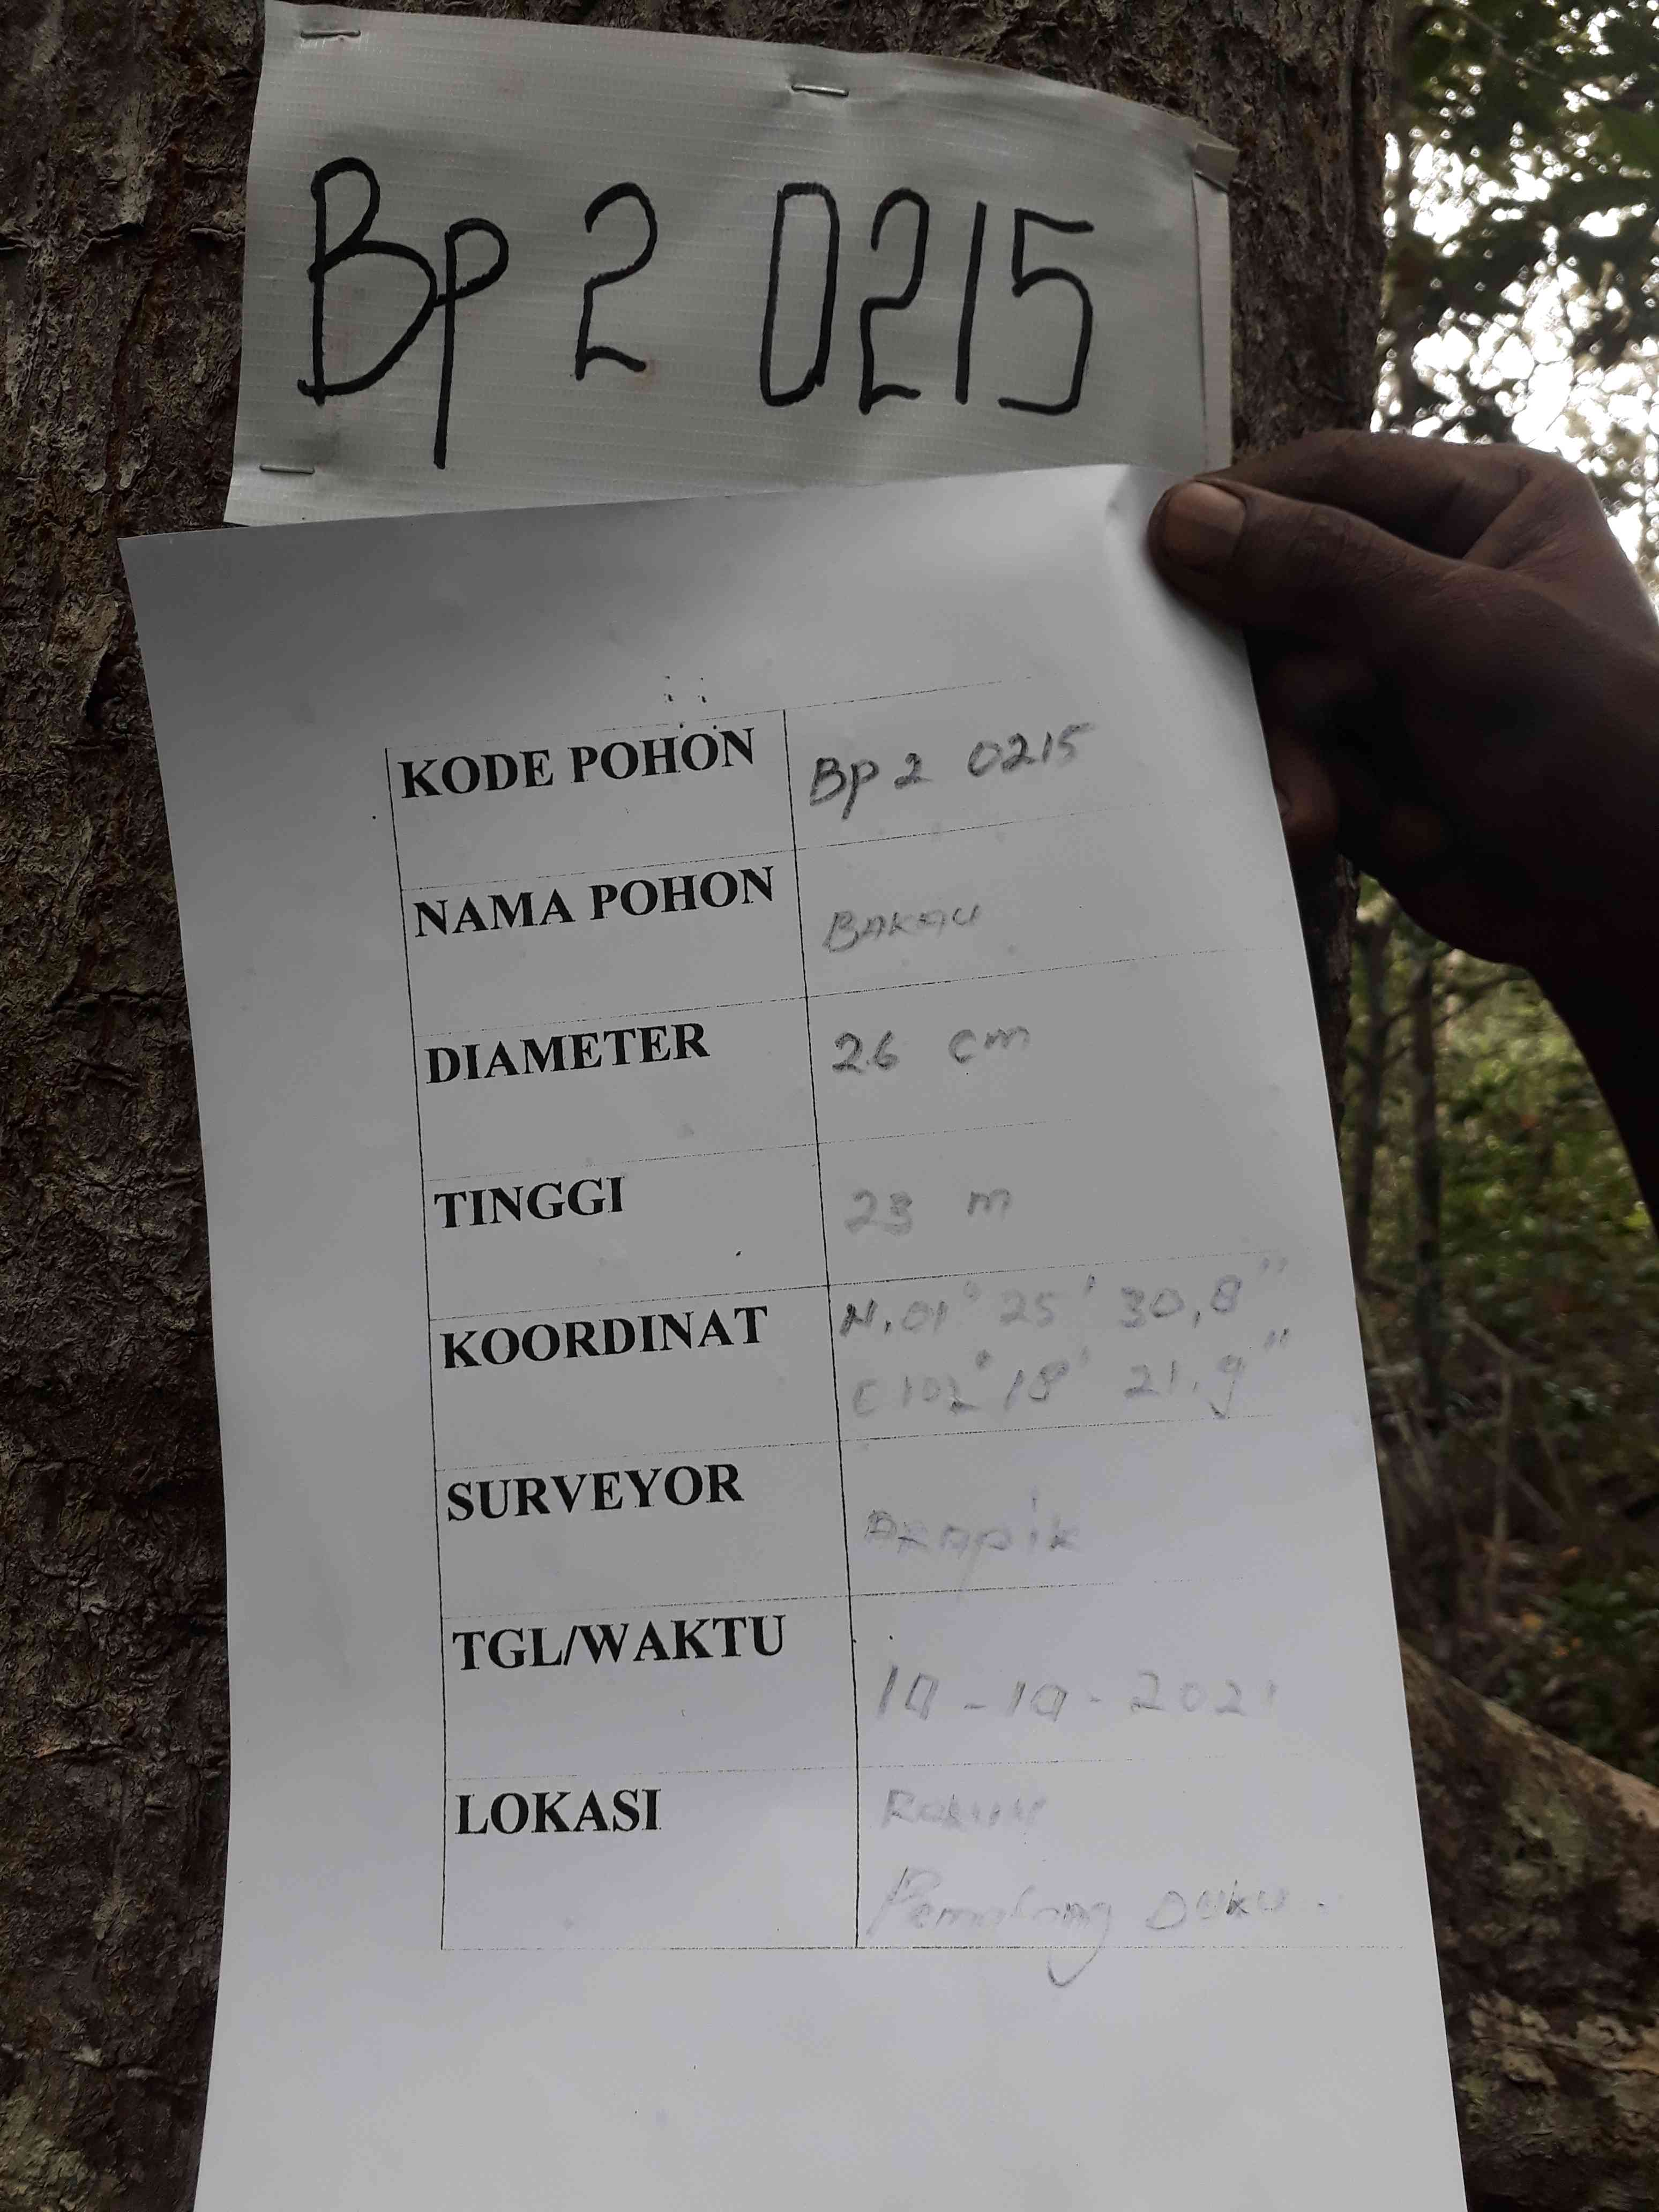 Bp 2 0215
KODE POHON Bp 2 0215
NAMA POHON BAKAU
DIAMETER 26 cm
TINGGI 23 m
KOORDINAT N.01° 25' 30,8"
E 102° 18' 21.9"
SURVEYOR
TGL/WAKTU
LOKASI
Pematang Duku.